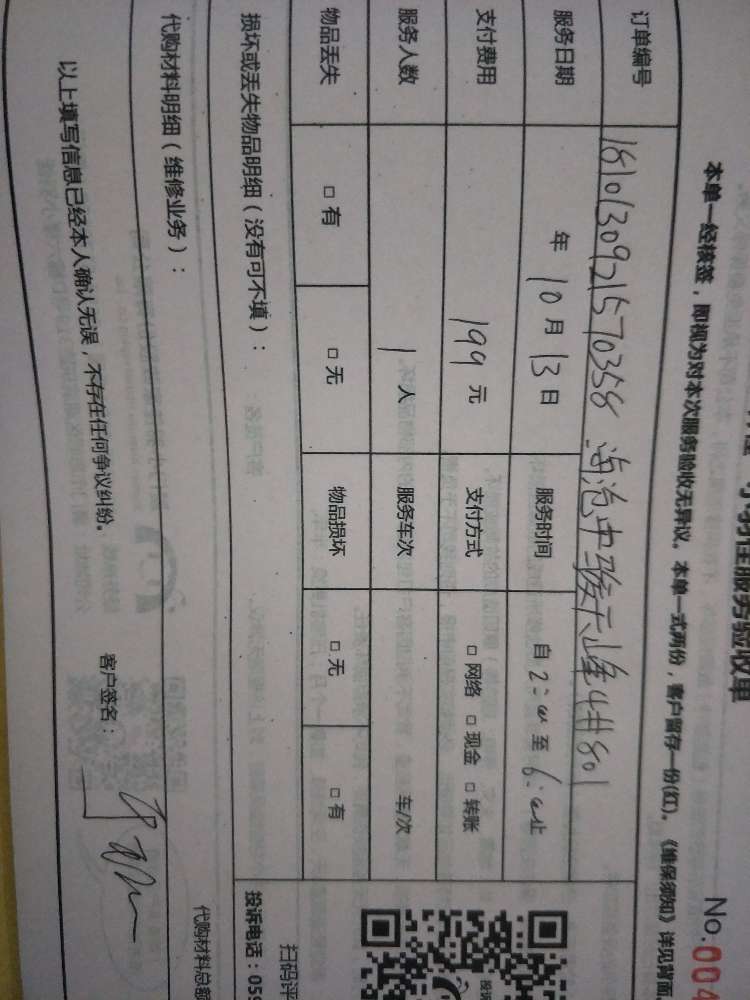 服务验收单
No.004
本单一经核签，即视为对本次服务验收无异议。本单一式两份，客户留存一份(红)。《维保须知》详见背面
订单编号 1810130921570358 海沧中骏天峰4#801
服务日期 年10月13日 服务时间 自2:00至6:00止
支付费用 199元 支付方式 □网络 □现金 □转账
服务人数 1人 服务车次 车/次
物品丢失 □有 □无 物品损坏 □无 □有
损坏或丢失物品明细（没有可不填）：
投诉电话：059
扫码评
代购材料明细（维修业务）：
代购材料总额
以上填写信息已经本人确认无误，不存在任何争议纠纷。
客户签名：